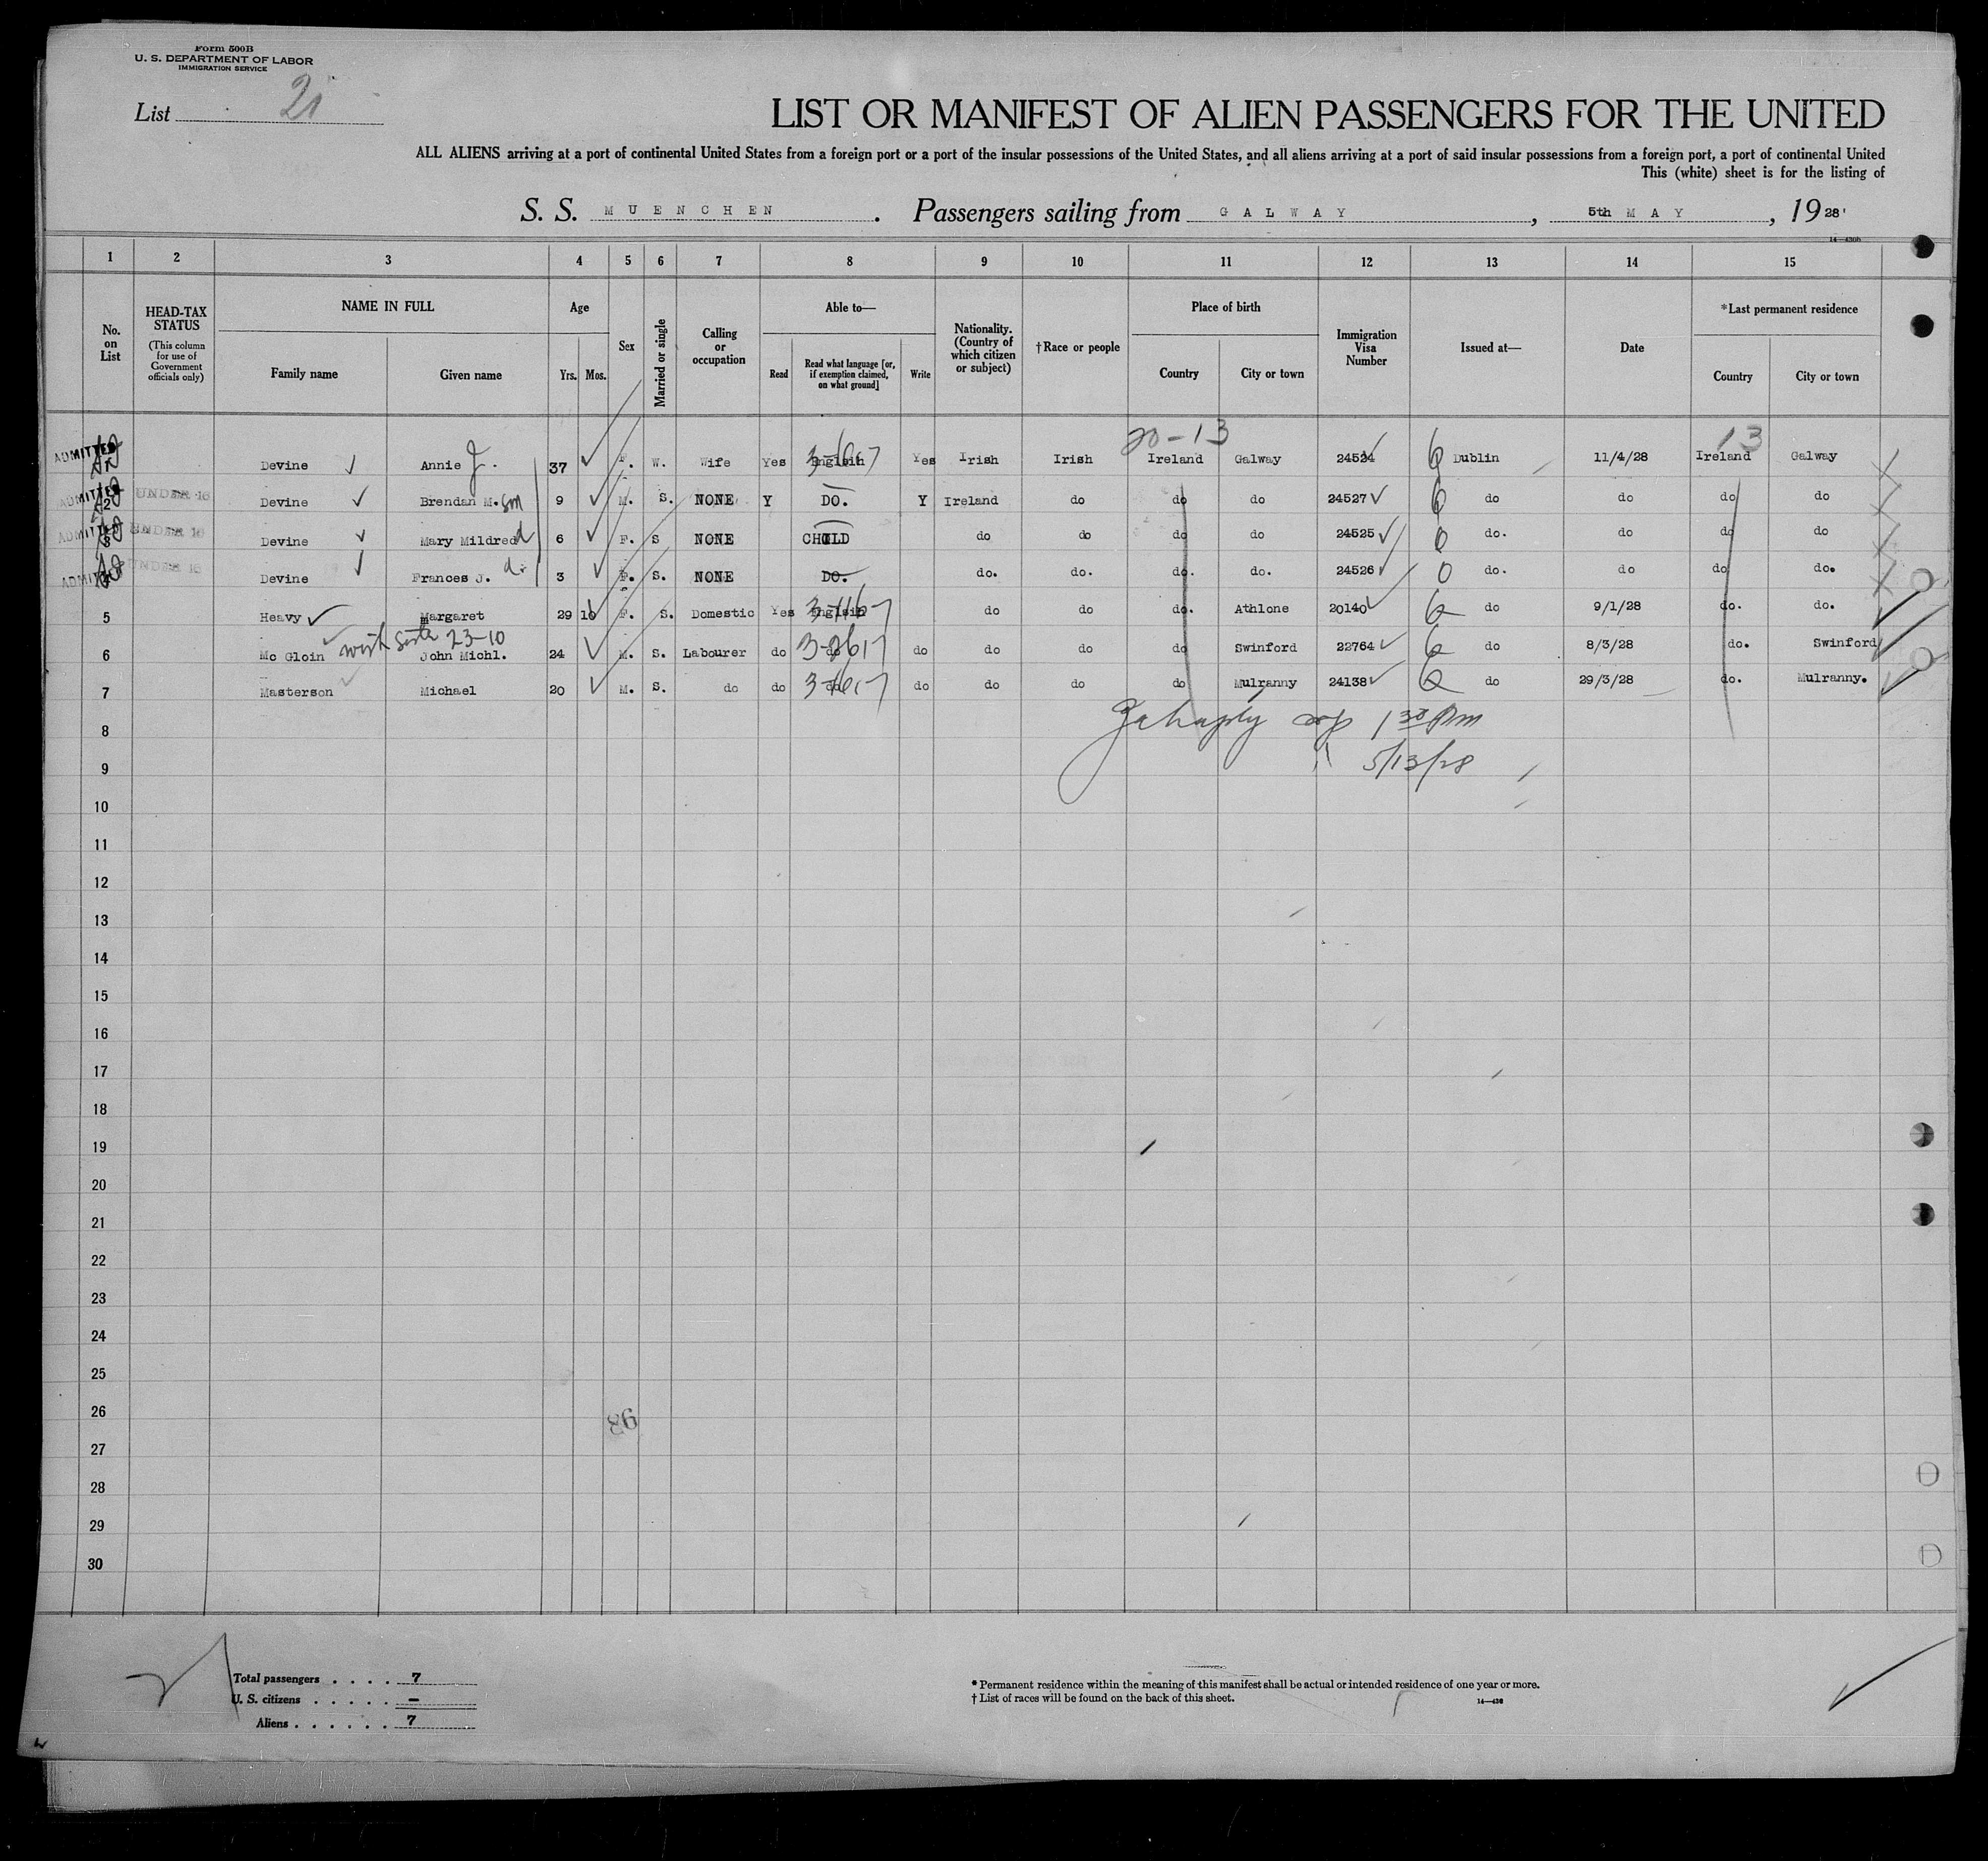 Form 500B
U. S. DEPARTMENT OF LABOR
IMMIGRATION SERVICE
List 21
LIST OR MANIFEST OF ALIEN PASSENGERS FOR THE UNITED
ALL ALIENS arriving at a port of continental United States from a foreign port or a port of the insular possessions of the United States, and all aliens arriving at a port of said insular possessions from a foreign port, a port of continental United
This (white) sheet is for the listing of
S. S. MUENCHEN . Passengers sailing from GALWAY , 5th MAY , 19 28'
1 2 3 4 5 6 7 8 9 10 11 12 13 14 15
No. on List
HEAD-TAX STATUS
(This column for use of Government officials only)
NAME IN FULL
Family name
Given name
Age
Yrs. Mos.
Sex
Married or single
Calling or occupation
Able to—
Read
Read what language [or, if exemption claimed, on what ground]
Write
Nationality. (Country of which citizen or subject)
†Race or people
Place of birth
Country
City or town
Immigration Visa Number
Issued at—
Date
*Last permanent residence
Country
City or town
20-13 13
ADMITTED Devine Annie J. 37 F. W. Wife Yes Englsih Yes Irish Irish Ireland Galway 24524 Dublin 11/4/28 Ireland Galway
ADMITTED 2 UNDER 16 Devine Brendan M. 9 M. S. NONE Y DO. Y Ireland do do do 24527 do do do do
ADMITTED 3 UNDER 16 Devine Mary Mildred 6 F. S NONE CHILD do do do do 24525 do. do do do
ADMITTED UNDER 16 Devine Frances J. 3 F. S. NONE DO. do. do. do. do. 24526 do. do do do.
5 Heavy Margaret 29 10 F. S. Domestic Yes Englsih do do do. Athlone 20140 do 9/1/28 do. do.
23-10
6 Mc Gloin John Michl. 24 M. S. Labourer do do do do do do Swinford 22764 do 8/3/28 do. Swinford
7 Masterson Michael 20 M. S. do do do do do do do Mulranny 24138 do 29/3/28 do. Mulranny.
8
9 5/13/28
10
11
12
13
14
15
16
17
18
19
20
21
22
23
24
25
26
27
28
29
30
Total passengers . . . . . 7
U. S. citizens . . . . . —
Aliens . . . . . . 7
* Permanent residence within the meaning of this manifest shall be actual or intended residence of one year or more.
† List of races will be found on the back of this sheet.
14—430